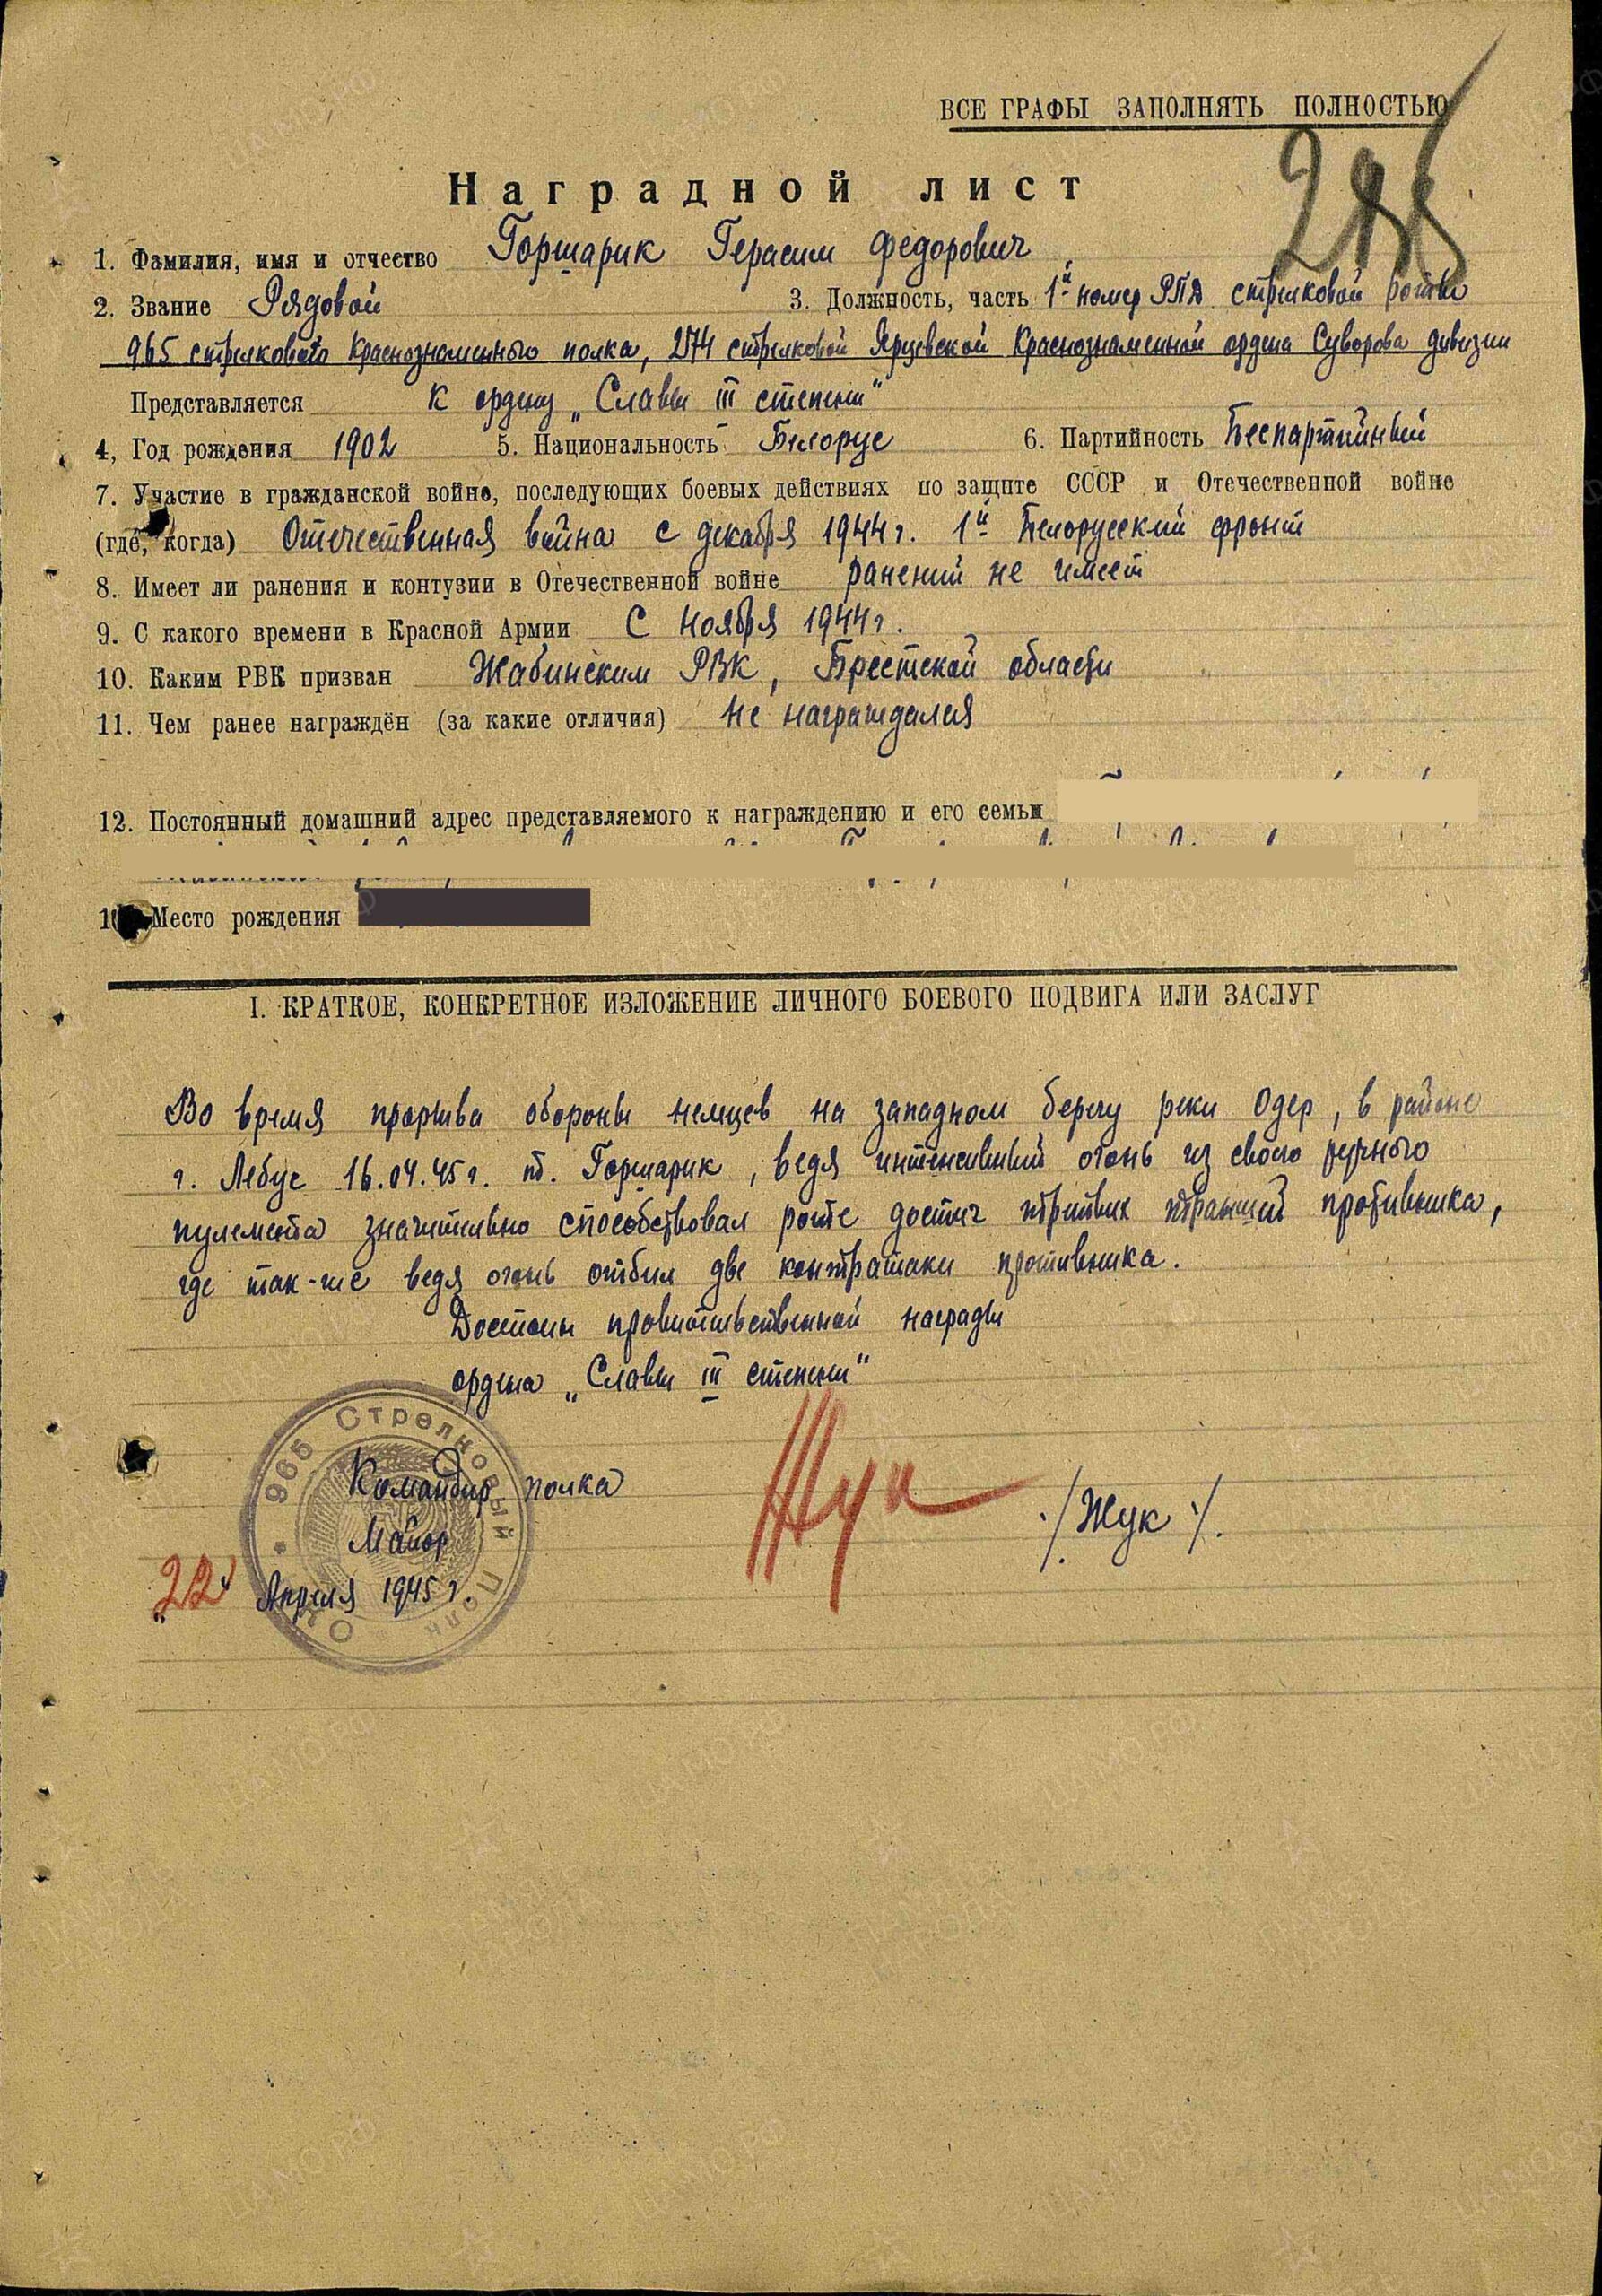 ВСЕ ГРАФЫ ЗАПОЛНЯТЬ ПОЛНОСТЬЮ
Наградной лист
1. Фамилия, имя и отчество Горщарик Герасим Федорович
2. Звание Рядовой 3. Должность, часть 1й номер РПД стрелковой роты
965 стрелкового Краснознаменного полка, 274 стрелковой Ярцевской Краснознаменной ордена Суворова дивизии
Представляется к ордену „Славы III степени"
4, Год рождения 1902 5. Национальность Белорус 6. Партийность Беспартийный
7. Участие в гражданской войне, последующих боевых действиях по защите СССР и Отечественной войне
(где, когда) Отечественная война с декабря 1944 г. 1й Белорусский фронт
8. Имеет ли ранения и контузии в Отечественной войне ранений не имеет
9. С какого времени в Красной Армии С ноября 1944 г.
10. Каким РВК призван Жабинским РВК, Брестской области
11. Чем ранее награждён (за какие отличия) Не награждался
12. Постоянный домашний адрес представляемого к награждению и его семьи
Место рождения
I. КРАТКОЕ, КОНКРЕТНОЕ ИЗЛОЖЕНИЕ ЛИЧНОГО БОЕВОГО ПОДВИГА ИЛИ ЗАСЛУГ
Во время прорыва обороны немцев на западном берегу реки Одер, в районе
г. Лебус 16.04.45 г. т. Горщарик, ведя интенсивный огонь из своего ручного
пулемета значительно способствовал роте достич третьих траншей противника,
где так-же ведя огонь отбил две контратаки противника.
Достоин правительственной награды
ордена „Славы III степени"
965 Стрелковый Полк
Командир полка
Майор
Жук /Жук/.
„22" Апреля 1945 г.
ЦАМО.РФ